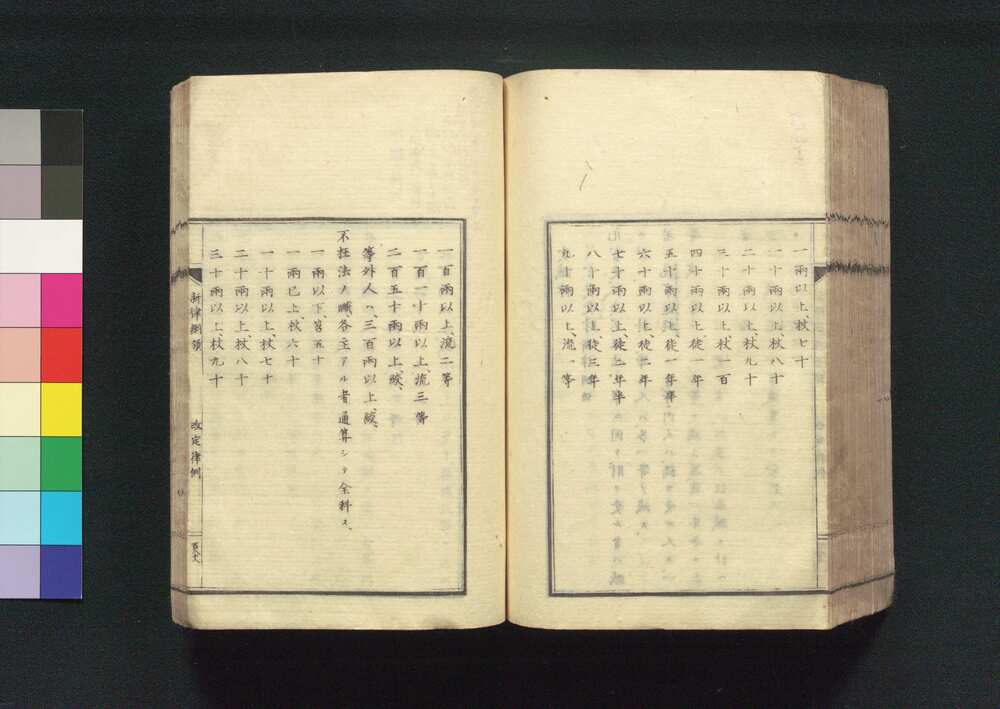 一兩以上、杖七十
一十兩以上、杖八十
二十兩以上、杖九十
三十兩以上、杖一百
四十兩以上、徒一年
五十兩以上、徒一年半
六十兩以上、徒二年
七十兩以上、徒二年半
八十兩以上、徒三年
九十兩以上、流一等
一百兩以上、流二等
一百一十兩以上、流三等
二百五十兩以上、絞、
等外人ハ、三百兩以上、絞、
不枉法ノ贓各主アル者通算シテ全科ス、
一兩以下、笞五十
一兩已上、杖六十
一十兩以上、杖七十
二十兩以上、杖八十
三十兩以上、杖九十
新律綱領
改定律例